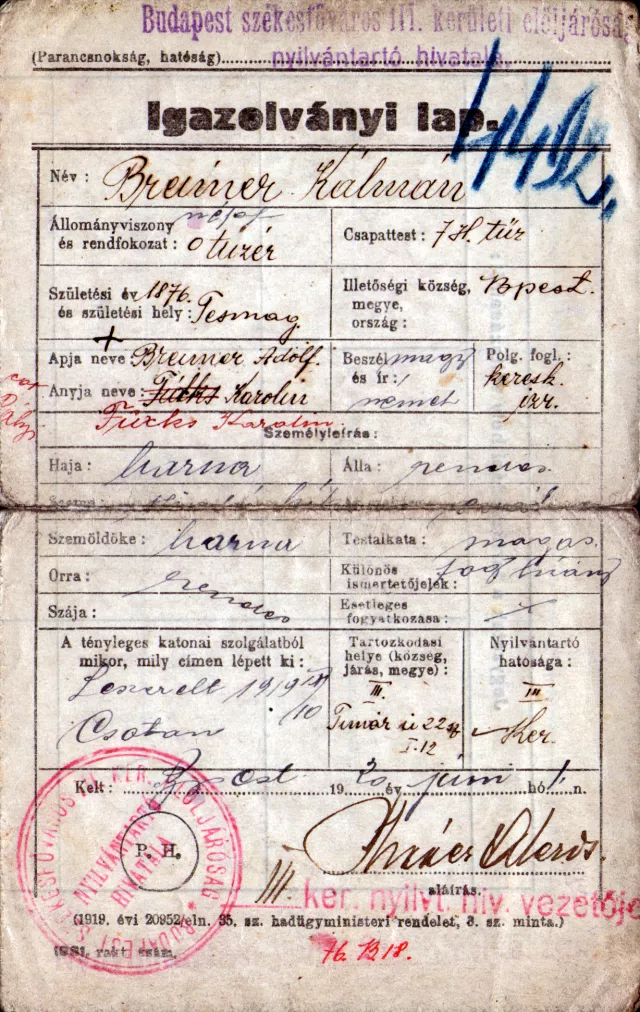 Budapest székesfőváros III. kerületi elöljáróság
(Parancsnokság, hatóság) nyilvántartó hivatala.
Igazolványi lap.
4492.
Név: Breiner Kálmán
Állományviszony népf
és rendfokozat: o tüzér
Csapattest: 7 H. tür
Születési év 1876.
és születési hely: Tesmag
Illetőségi község, Bpest.
megye,
ország:
Apja neve Breiner Adolf.
Beszél magy
és ír:
német
Polg. fogl.:
keresk.
izr.
Anyja neve: Fükks Karolin
Fükks Karolin
Személyleírás:
Haja: barna
Álla: rendes.
Szemöldöke: barna
Testalkata: magas.
Orra: rendes
Különös
ismertetőjelek:
Szája:
Esetleges
fogyatkozása:
A tényleges katonai szolgálatból
mikor, mily címen lépett ki:
Leszerelt 1919
Tartozkodási
helye (község,
járás, megye):
III.
Timár u 22
I. 12
Nyilvántartó
hatósága:
III
Ker.
Kelt: Bpest 1920 év juni hó 1 n.
SZÉKESFŐVÁROS III. KER. ELÖLJÁRÓSÁG * BUDAPEST
NYILVÁNTARTÓ
HIVATALA
P. H.
aláírás.
III. ker. nyilvt. hiv. vezetője
(1919. évi 20952/eln. 35. sz. hadügyministeri rendelet, 3. sz. minta.)
rakt. szám.